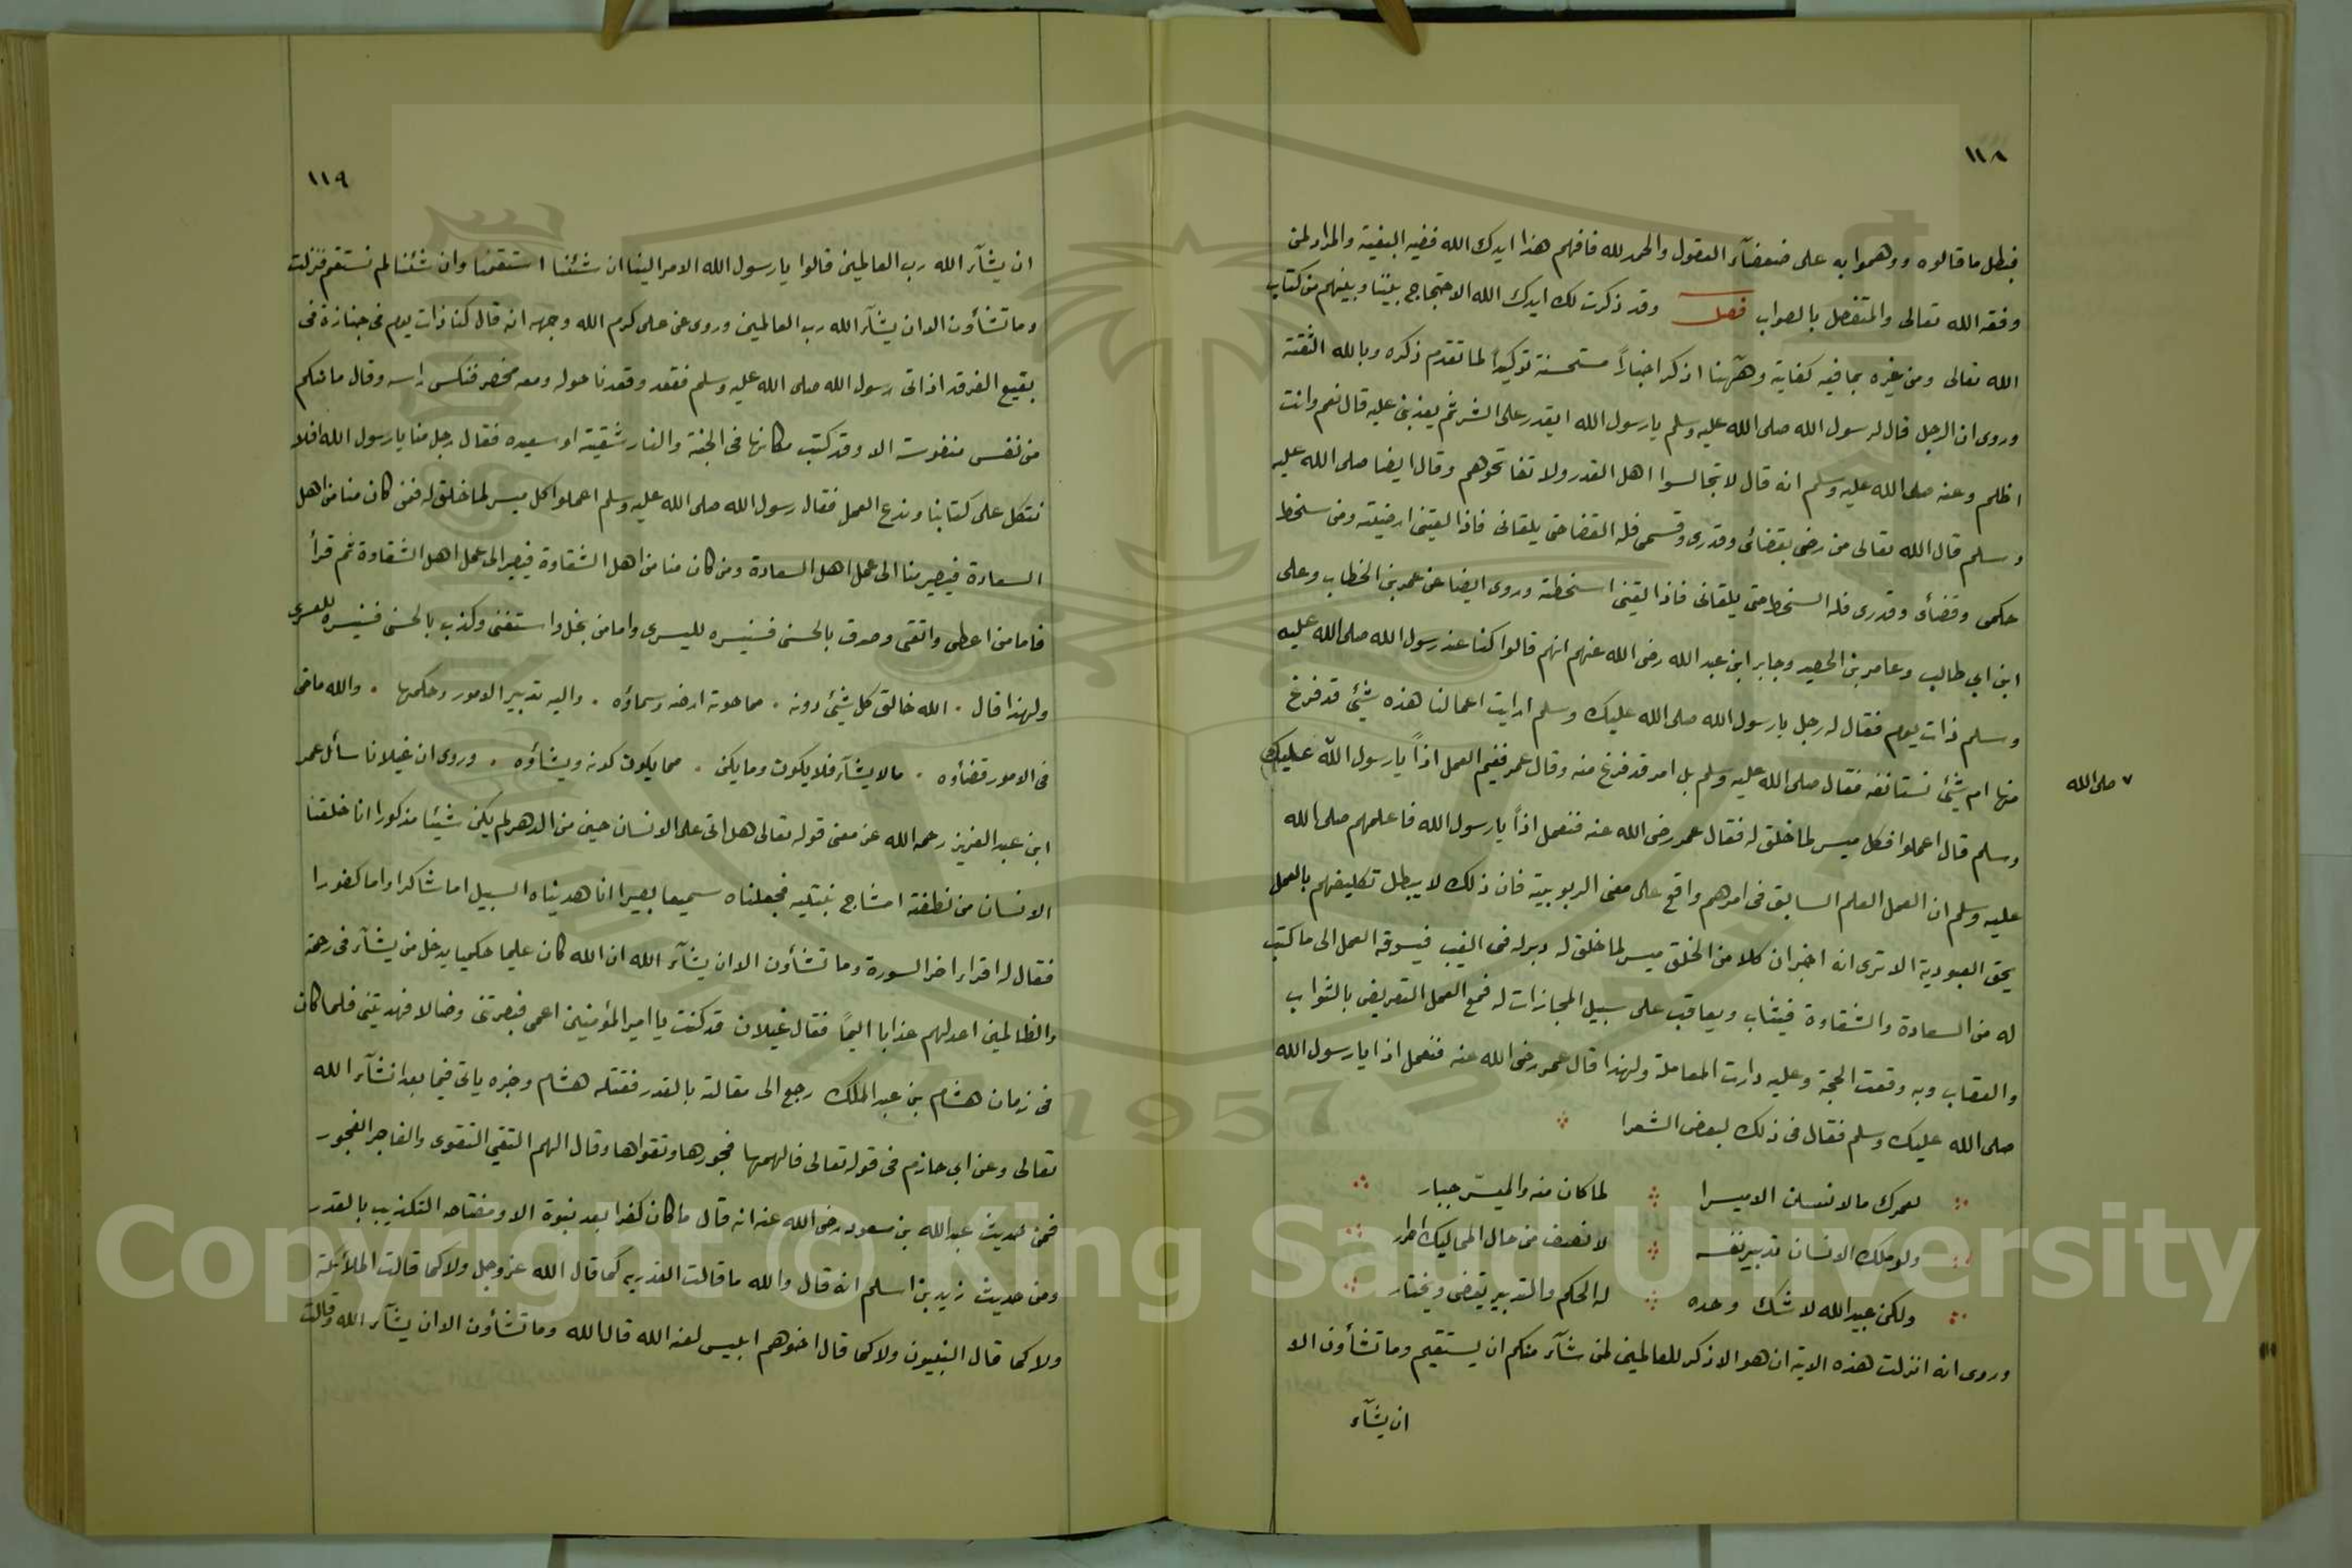 ١١٨
فبطل ما قالوه ووهموا به على ضعفآء العقول والحمد لله فافهم هذا ايدك الله ففيه البغية والمراد لمن
وفقه الله تعالى والمتفضل بالصواب فصل وقد ذكرت لك ايدك الله الاحتجاج بيننا وبينهم من كتاب
الله تعالى ومن غيره بما فيه كفاية وهٓهنا اذكر اخباراً مستحسنة توكيداً لما تقدم ذكره وبالله الثقة
وروى ان الرجل قال لرسول الله صلى الله عليه وسلم يا رسول الله ايقدر على الشر ثم يعذبنى عليه قال نعم وانت
اظلم وعنه صلى الله عليه وسلم انه قال لا تجالسوا اهل القدر ولا تفاتحوهم وقال ايضا صلى الله عليه
وسلم قال الله تعالى من رضى بقضائى وقدرى وقسمى فله القضا حتى يلقانى فاذا لقينى ارضيته ومن سخط
حكمى وقضائى وقدرى فله السخط حتى يلقانى فاذا لقينى اسخطته وروى ايضا عن عمر بن الخطاب وعلى
ابن ابي طالب وعامر بن الحصير وجابر ابن عبد الله رضى الله عنهم انهم قالوا كنا عند رسول الله صلى الله عليه
وسلم ذات يوم فقال له رجل يا رسول الله صلى الله عليك وسلم ارايت اعمالنا هذه شيئ قد فرغ
منها ام شيئ نستانفه فقال صلى الله عليه وسلم بل امر قد فرغ منه وقال عمر ففيم العمل اذاً يا رسول الله عليك
٧ صلى الله
وسلم قال اعملوا فكل ميسر لما خلق له فقال عمر رضى الله عنه فنعمل اذاً يا رسول الله فاعلمهم صلى الله
عليه وسلم ان العمل العلم السابق فى امرهم واقع على معنى الربوبية فان ذلك لا يبطل تكليفهم بالعمل
بحق العبودية الا ترى انه اخبر ان كلا من الخلق ميسر لما خلق له دبر له فى الغيب فيسوقه العمل الى ما كتب
له من السعادة والشقاوة فيثاب ويعاقب على سبيل المجازات له فمع العمل التعريض بالثواب
والعقاب وبه وقعت الحجة وعليه دارت المعاملة ولهذا قال عمر رضى الله عنه فنعمل اذا يا رسول الله
صلى الله عليك وسلم فقال فى ذلك لبعض الشعرا
لعمرك ما الانسان الا ميسرا لما كان منه والميسّر جبار
ولو ملك الانسان تدبير نفسه لا نصف من حال المماليك احرار
ولكن عبيد الله لا شك وحده له الحكم والتدبير يقضى ويختار
وروى انه انزلت هذه الاية ان هو الا ذكر للعالمين لمن شآء منكم ان يستقيم وما تشأون الا
ان يشآء
١١٩
ان يشآء الله رب العالمين قالوا يا رسول الله الامر الينا ان شئنا استقمنا وان شئنا لم نستقم فنزلت
وما تشأون الا ان يشآء الله رب العالمين وروى عن على كرم الله وجهه انه قال كنا ذات يوم فى جنازة فى
بقيع الغرقد اذ اتى رسول الله صلى الله عليه وسلم فقعد وقعدنا حوله ومعه مخصر فنكس راسه وقال ما منكم
من نفس منفوسة الا وقد كتب مكانها فى الجنة والنار شقية او سعيده فقال رجل منا يا رسول الله افلا
نتكل على كتابنا وندع العمل فقال رسول الله صلى الله عليه وسلم اعملوا كل ميسر لما خلق له فمن كان منا من اهل
السعادة فيصير منا الى عمل اهل السعادة ومن كان منا من اهل الشقاوة فيصير الى عمل اهل الشقاوة ثم قرأ
فاما من اعطى واتقى وصدق بالحسنى فسنيسره لليسرى واما من بخل واستغنى وكذب بالحسنى فسنيسره للعسرى
ولهذا قال . الله خالق كل شيئ دونه . مما حوته ارضه وسماؤه . واليه تدبير الامور وحكمها . والله ماضى
فى الامور قضاؤه . ما لا يشآء فلا يكون وما يكن . مما يكون كونه ويشاؤه . وروى ان غيلانا سأل عمر
ابن عبد العزيز رحمه الله عن معنى قوله تعالى هل اتى على الانسان حين من الدهر لم يكن شيئا مذكورا انا خلقنا
الانسان من نطفة امشاج نبتليه فجعلناه سميعا بصيرا انا هديناه السبيل اما شاكرا واما كفورا
فقال له اقراء اخر السورة وما تشأون الا ان يشآء الله ان الله كان عليما حكيما يدخل من يشآء فى رحمته
والظالمين اعد لهم عذابا اليمًا فقال غيلان قد كنت يا امير المؤمنين اعمى فبصرتنى وضالا فهديتنى فلما كان
فى زمان هشام بن عبد الملك رجع الى مقالته بالقدر فقتله هشام وخبره ياتى فيما بعد انشآء الله
تعالى وعن ابي حازم فى قوله تعالى فالهمها فجورها وتقواها وقال الهم التقي التقوى والفاجر الفجور
فمن حديث عبد الله بن مسعود رضى الله عنه انه قال ما كان كفرا بعد نبوة الا ومفتاحه التكذيب بالقدر
ومن حديث زيد بن اسلم انه قال والله ما قالت القدريه كما قال الله عز وجل ولا كما قالت الملائكة
ولا كما قال النبيون ولا كما قال اخوهم ابليس لعنه الله قال الله وما تشأون الا ان يشآء الله وقالت
Copyright © King Saud University
1957